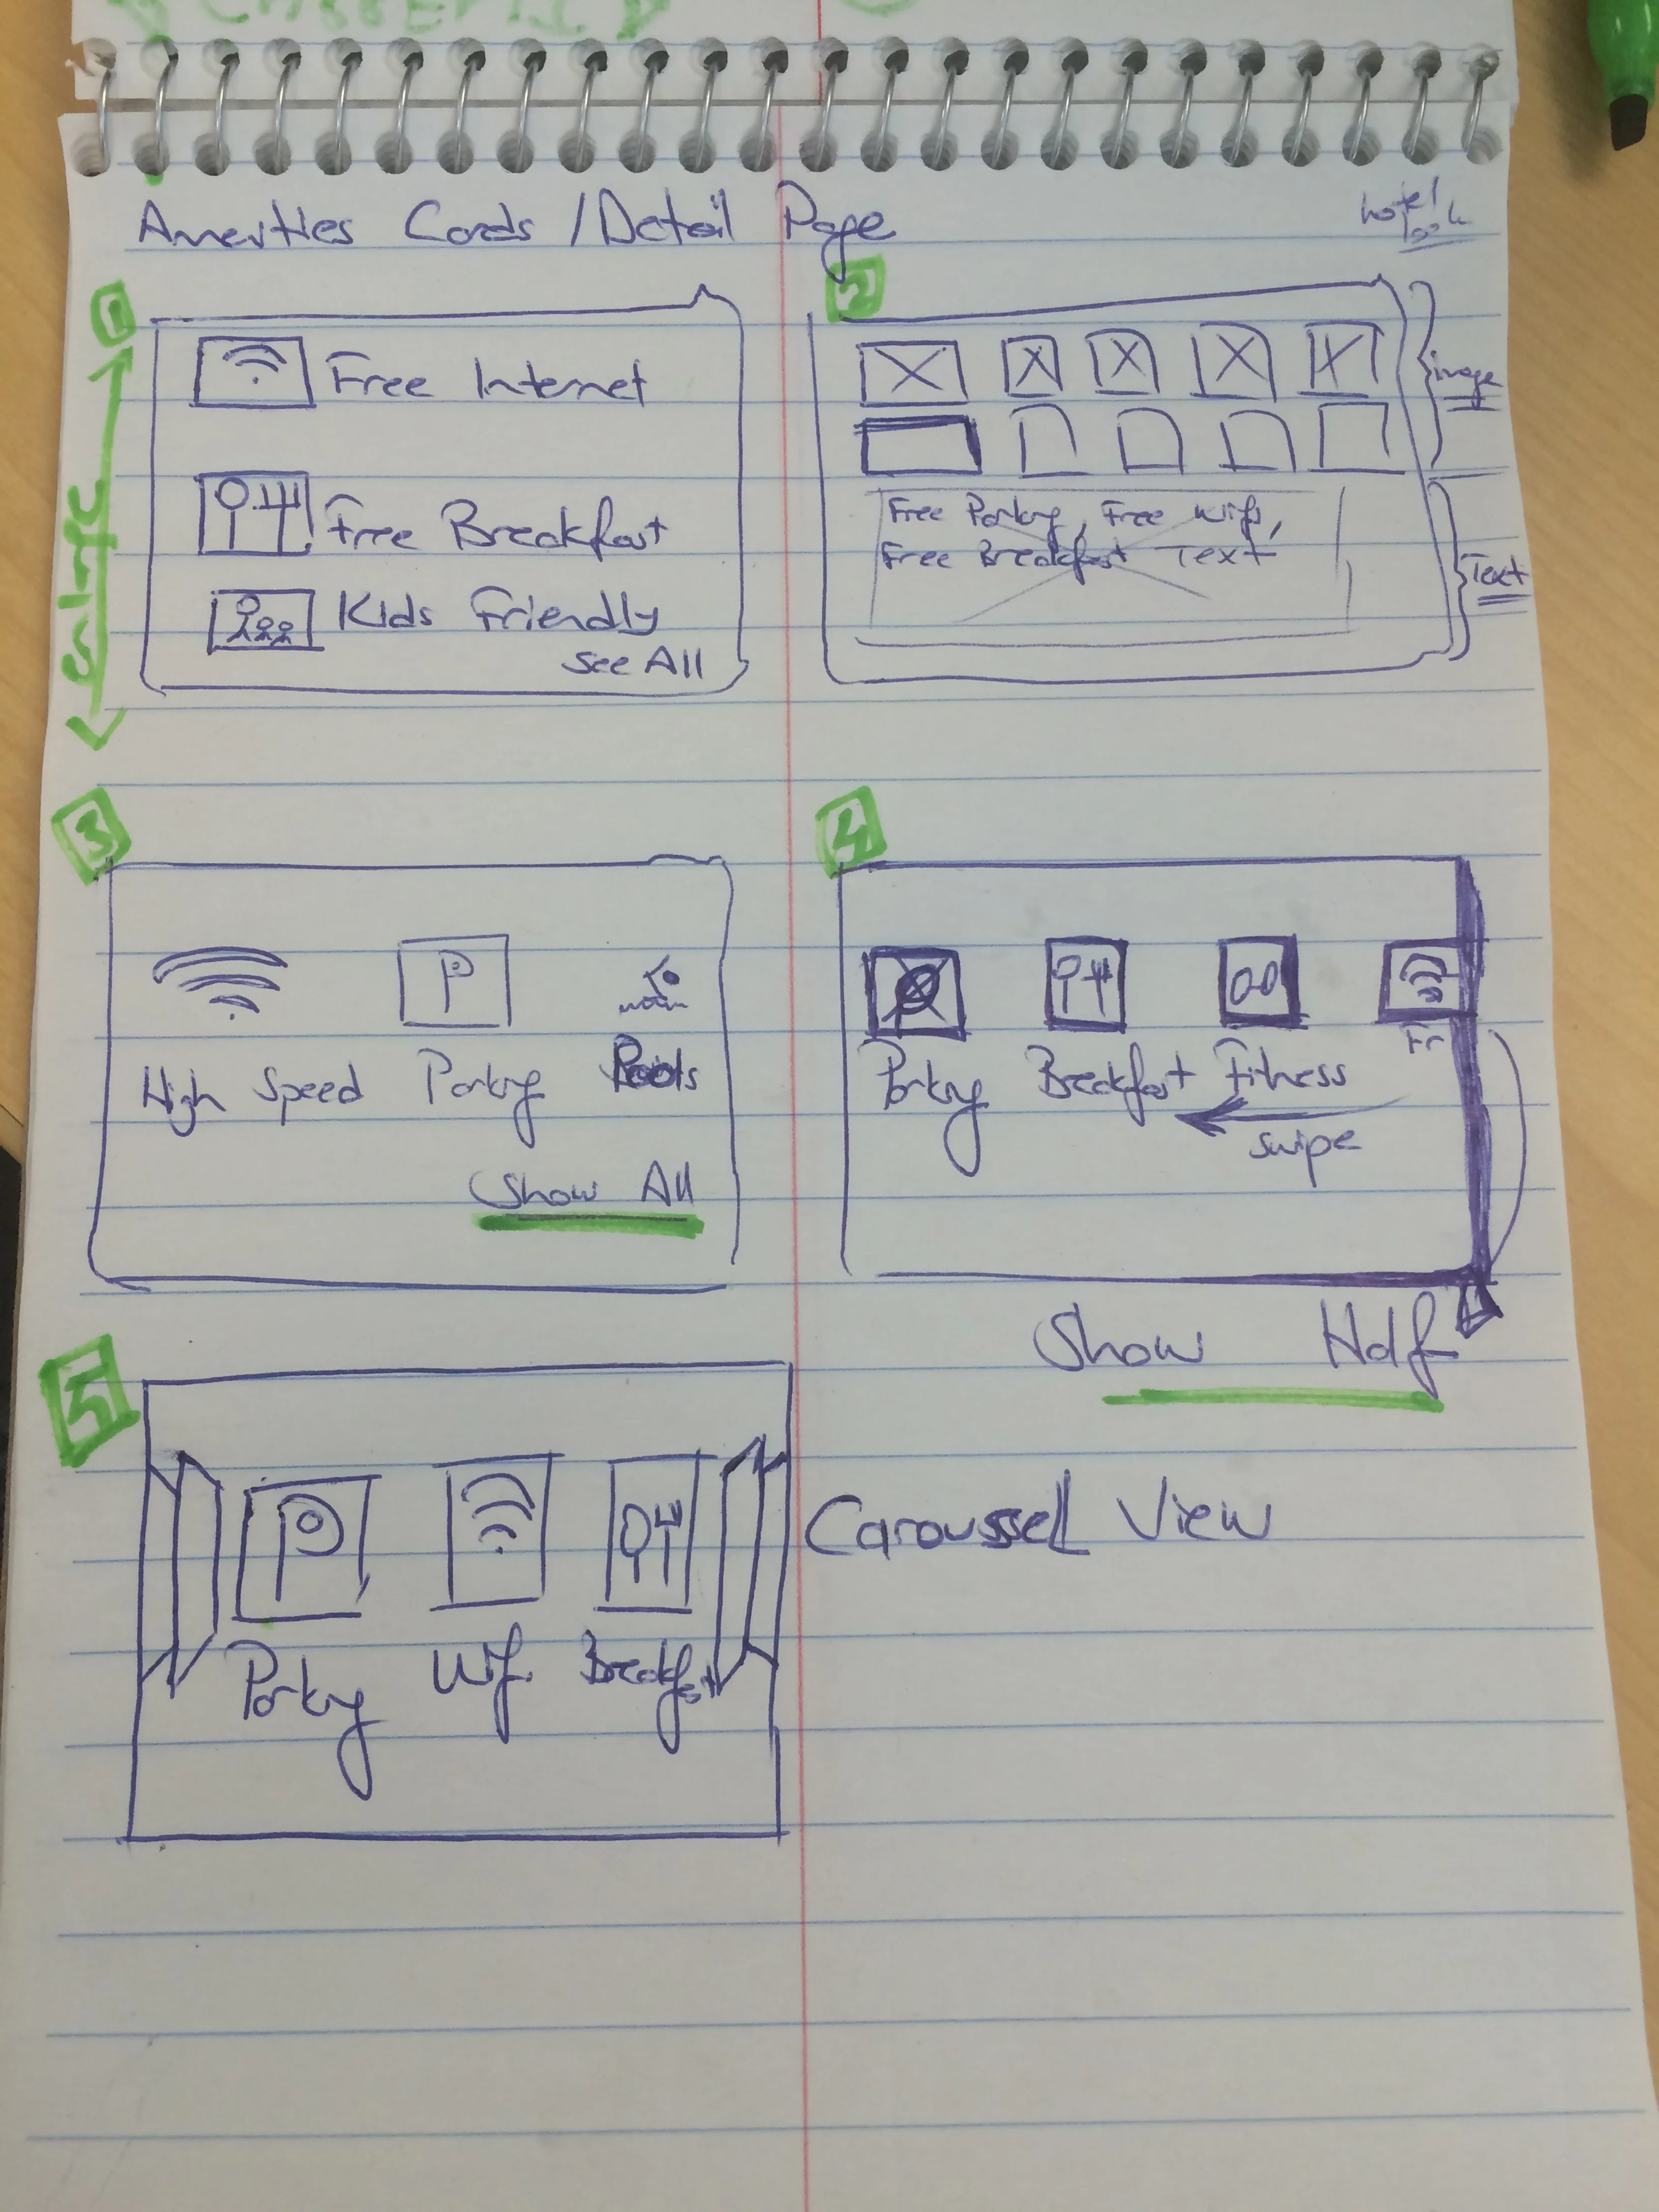 Amenities Cards / Detail Page
hotel
1
Free Internet
Free Breakfast
Kids Friendly
See All
2
image
Free Parking, Free Wifi,
Free Breakfast Text
Text
3
P
High Speed Parking Pools
Show All
4
Fr
Parking Breakfast Fitness
swipe
Show Half
5
P
Parking Wifi Breakfast
Caroussell View